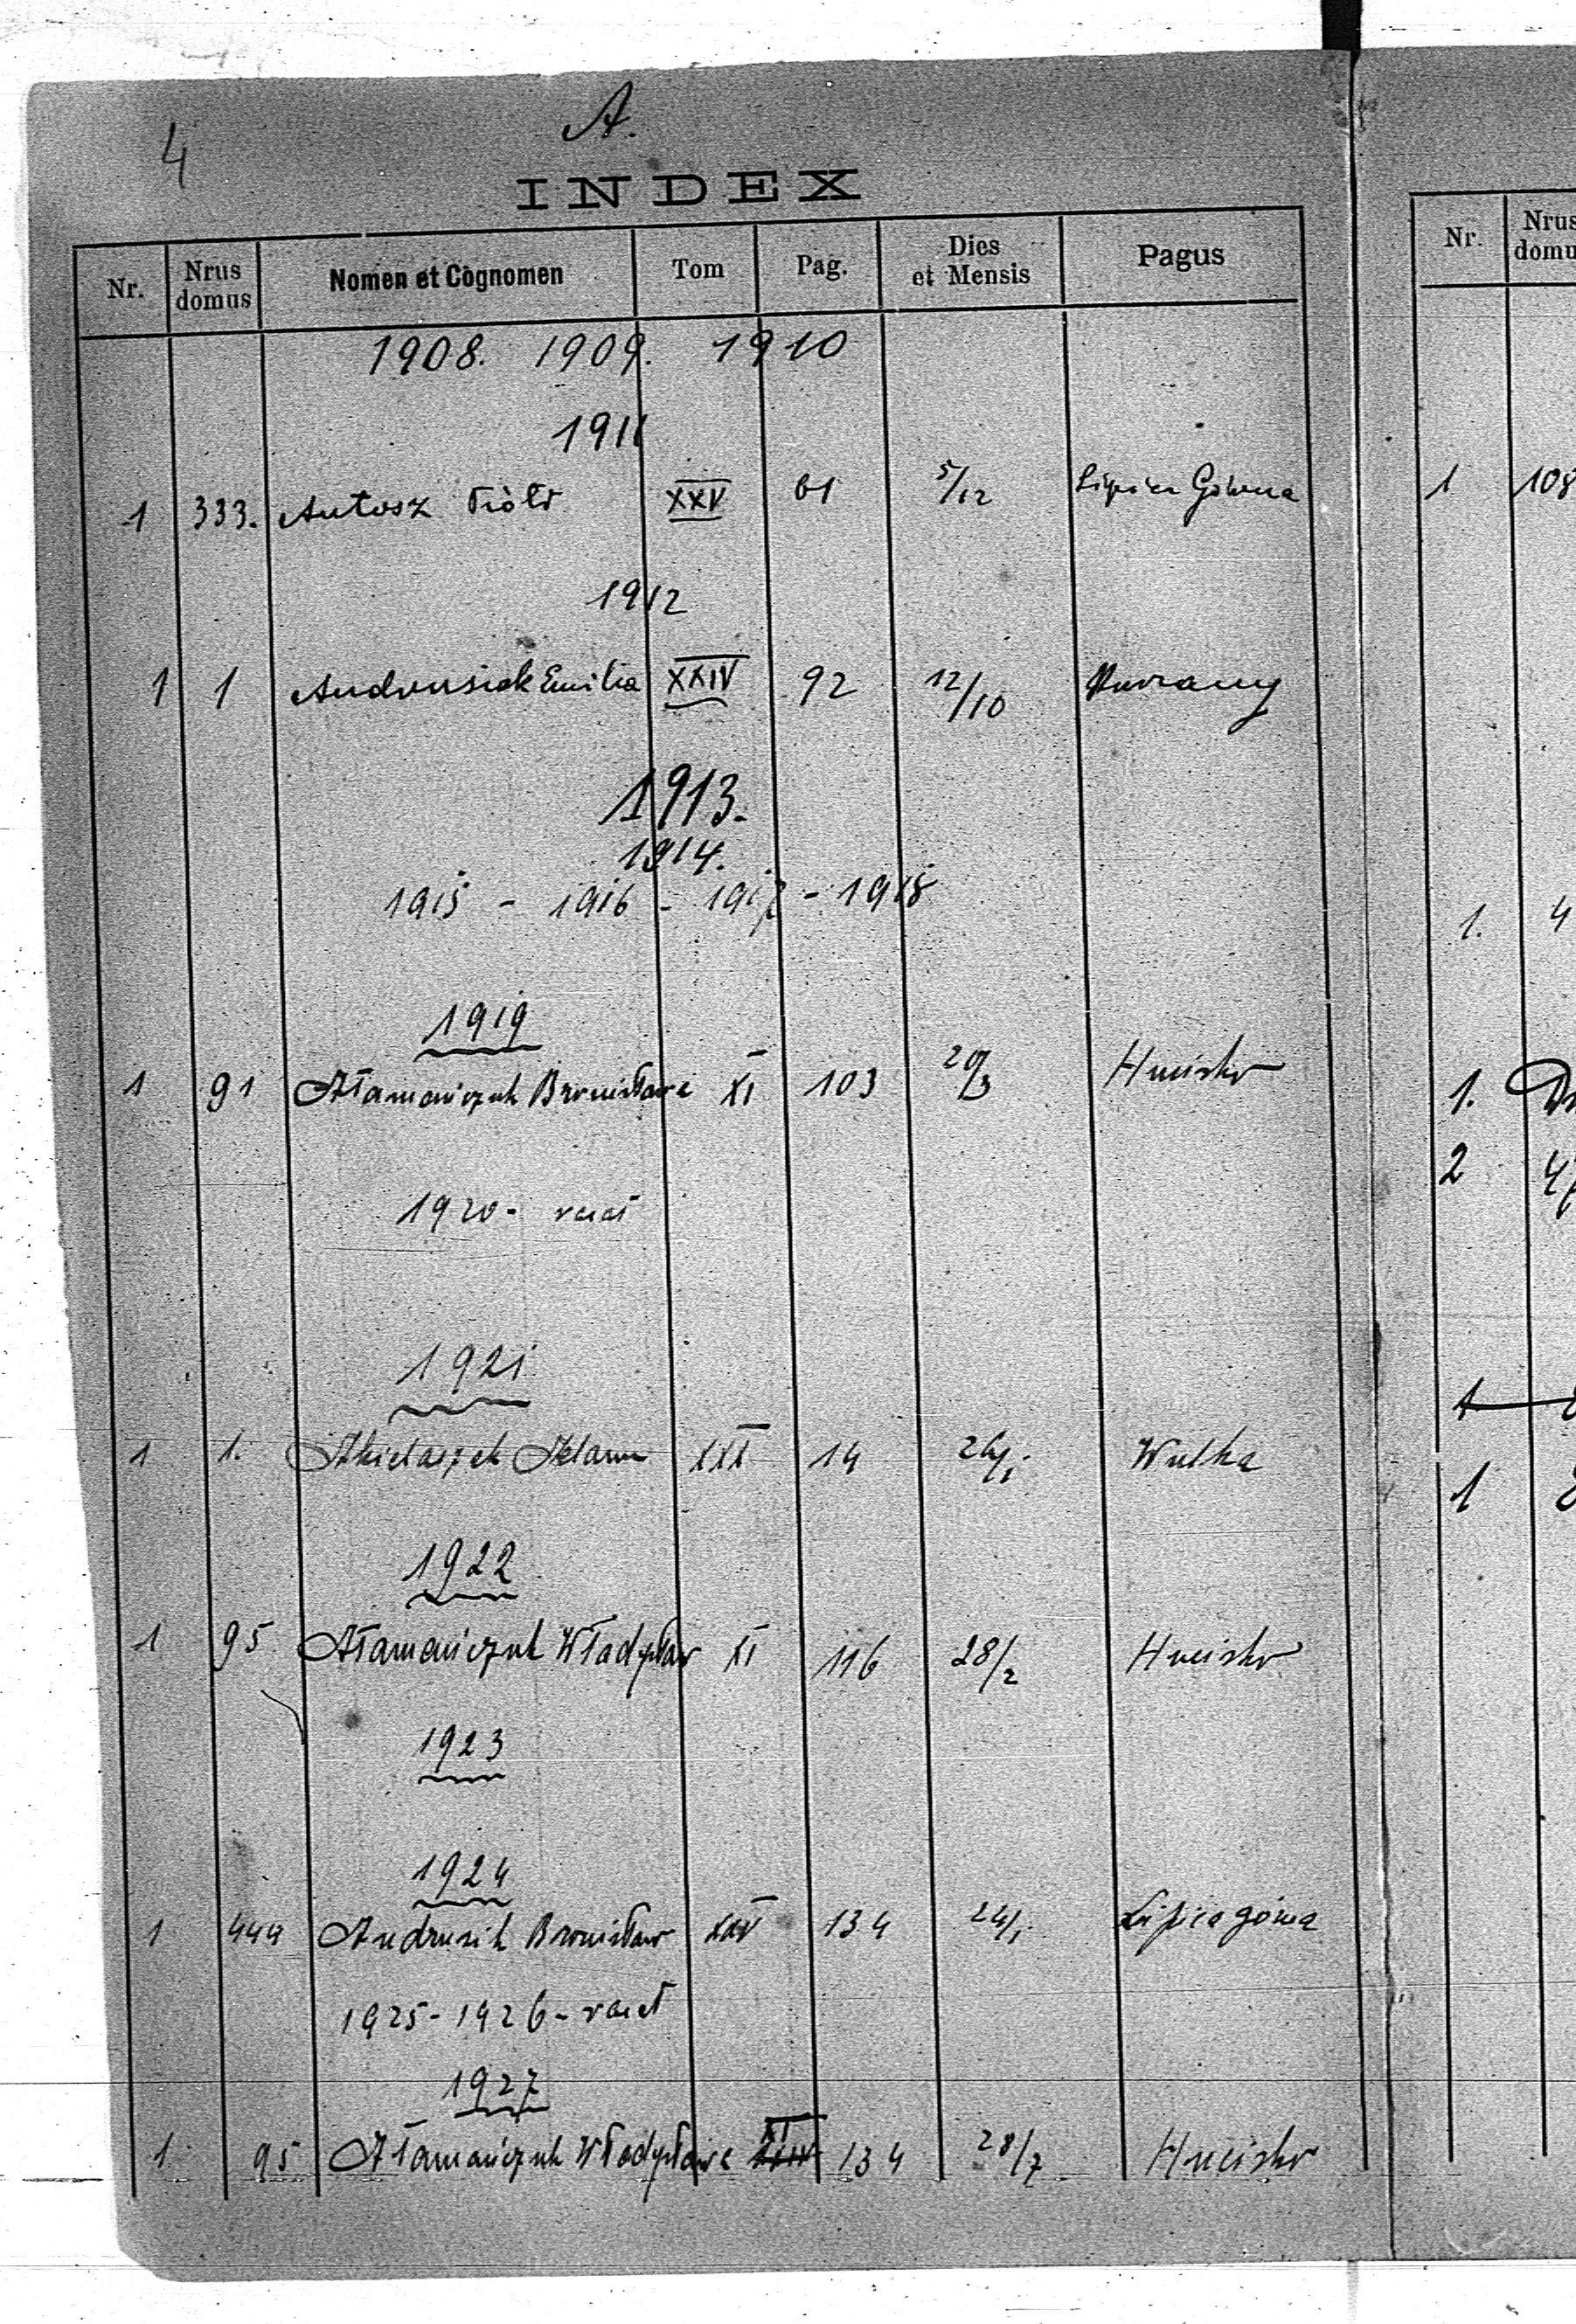 4
A.
INDEX
Nr. Nrus domus Nomen et Cognomen Tom Pag. Dies et Mensis Pagus
1908. 1909. 1910
1911
1 333. Antosz XXV 61 5/12 Lipica Górna
1912
1 1 Andrusiak Emilia XXIV 92 12/10
1913.
1914.
1915 - 1916 - 1917 - 1918
1919
1 91 Atamańczuk Bronisława XI 103 20/3 Hucisko
1920 - vacat
1921
1 1. XXI 14 26/1 Wulka
1922
1 95 Atamańczuk Władysław XI 116 28/2 Hucisko
1923
1924
1 444 Andrusik Bronisław XXV 134 24/1 Lipica górna
1925 - 1926 - vacat
1927
1 95 Atamańczuk Władysława XI 134 28/7 Hucisko
Nr. Nrus domu
1 108
1. 4
1.
2
1
1